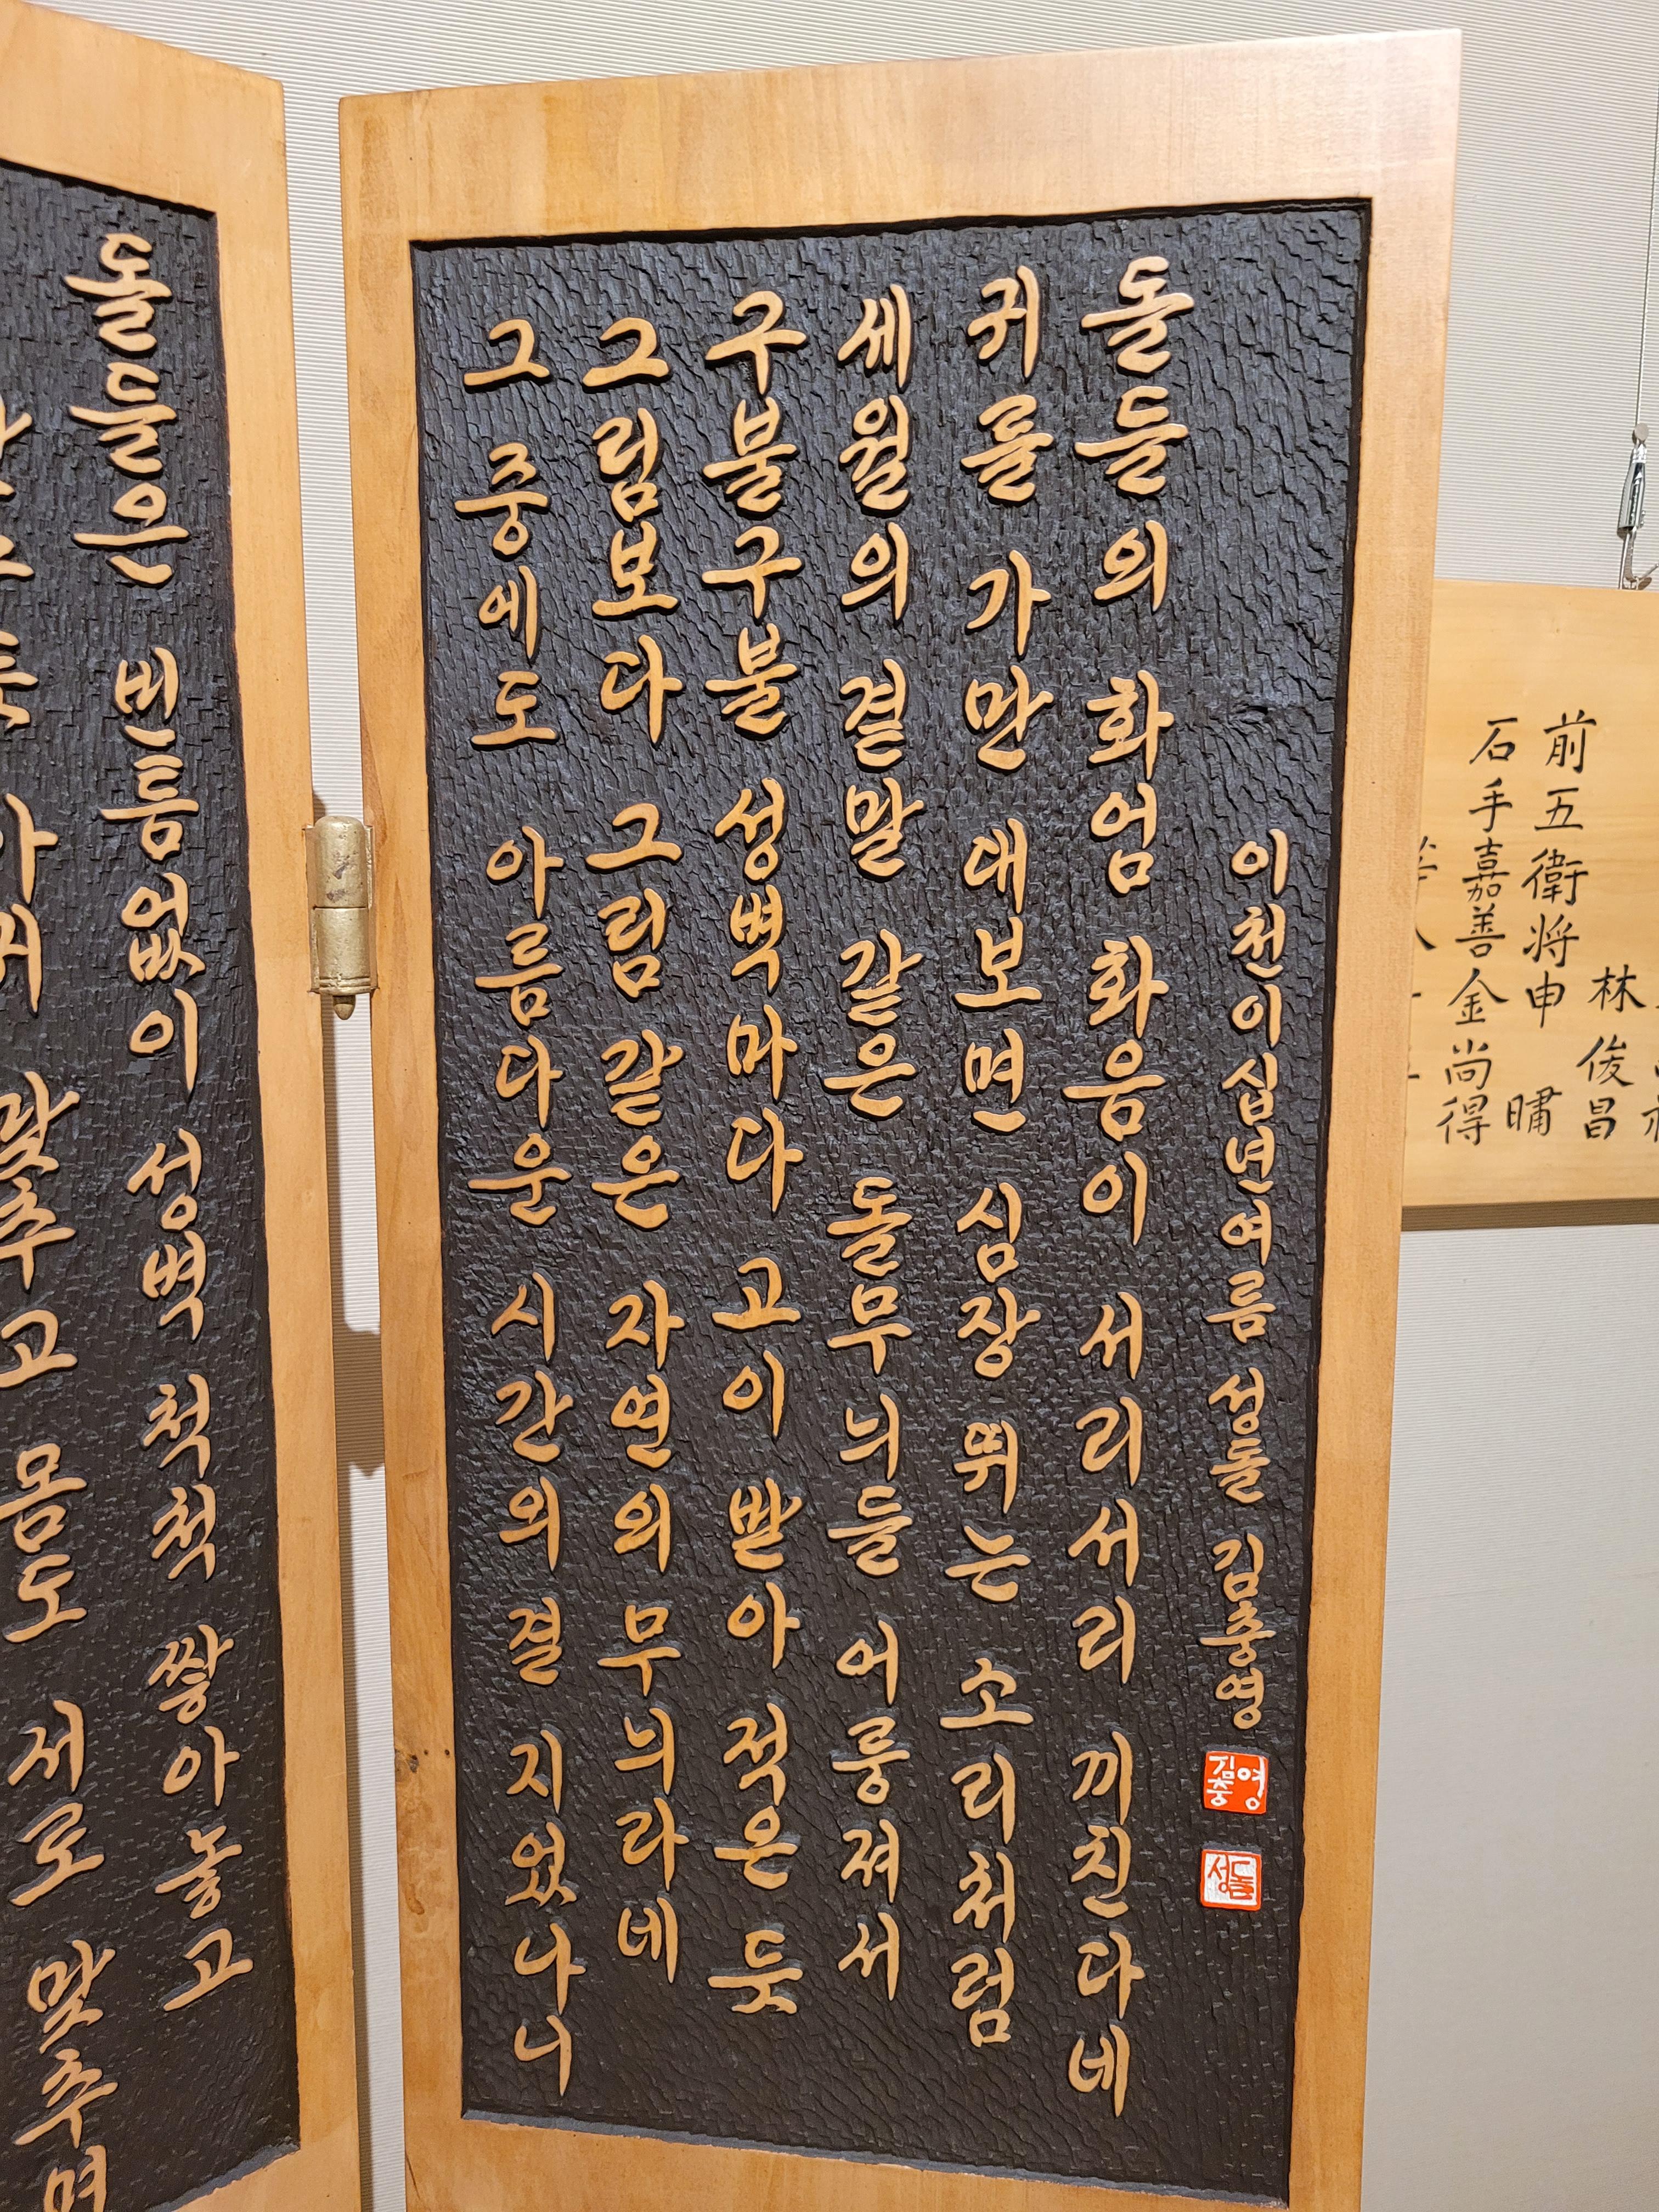 아귀 맞추고 몸도 서로 맞추며
돌들은 빈틈없이 성벽 척척 쌓아 놓고
그 중에도 아름다운 시간의 결 지었나니
그림보다 그림 같은 자연의 무늬라네
구불구불 성벽마다 고이 받아 적은 듯
세월의 결말 같은 돌무늬들 어룽져서
귀를 가만 대보면 심장 뛰는 소리처럼
돌들의 화엄 화음이 서리서리 끼친다네
이천이십년여름 성돌 김충영
김충영
성돌
林俊昌
前五衛将申嘯
石手嘉善金尚得